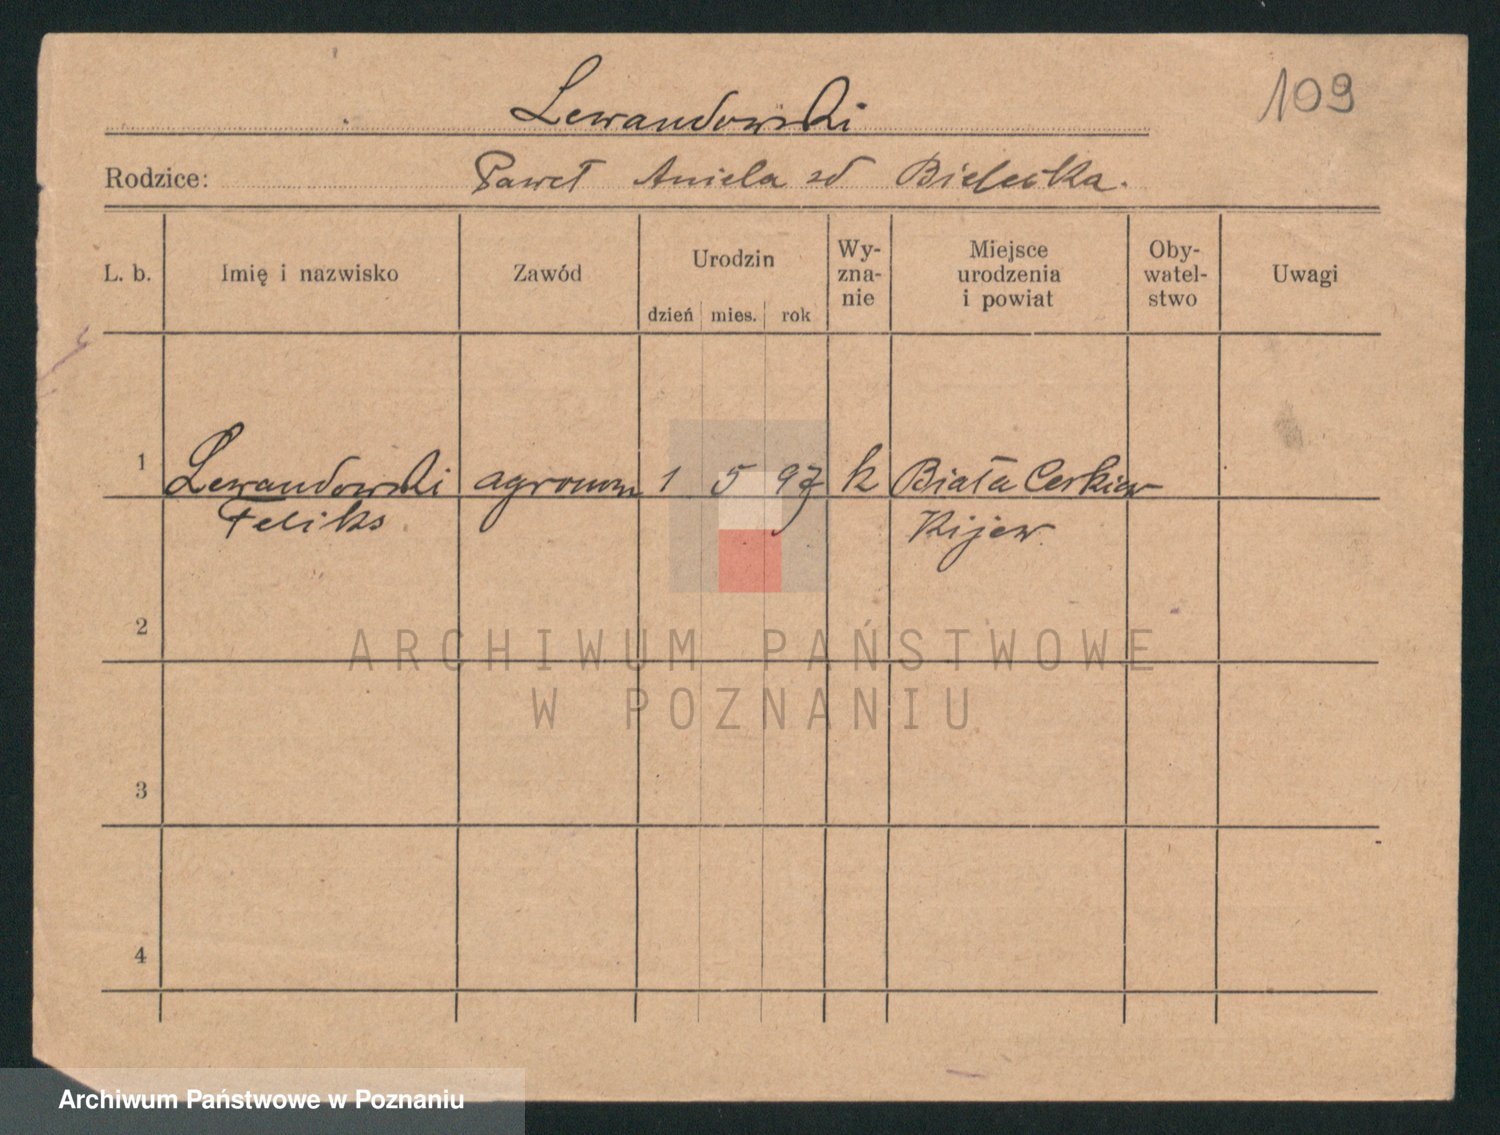 109
Lewandowski
Rodzice: Paweł Aniela zd Bielecka.
L. b. Imię i nazwisko Zawód Urodzin dzień mies. rok Wy-zna-nie Miejsce urodzenia i powiat Oby-watel-stwo Uwagi
1 Lewandowski agronom 1 5 97 k Biała Cerkiew
Feliks Kijew
2
ARCHIWUM PAŃSTWOWE
W POZNANIU
3
4
Archiwum Państwowe w Poznaniu